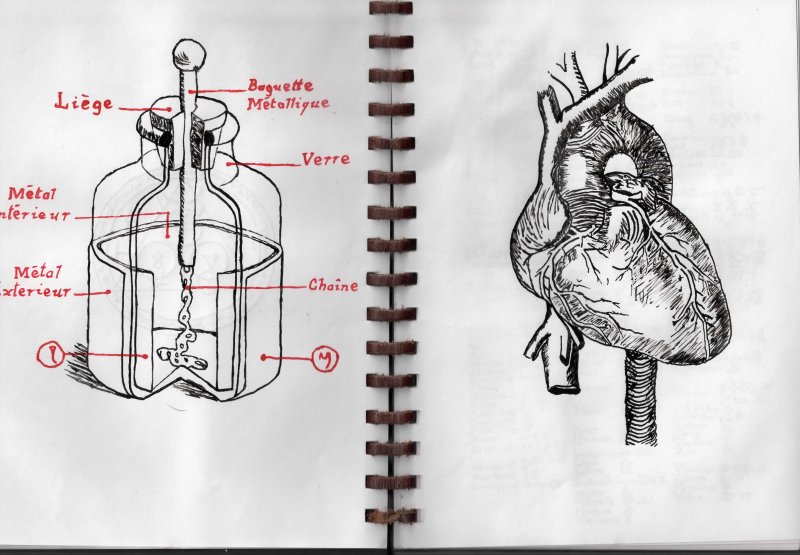 Liège
Baguette
Métallique
Verre
Métal
ntérieur
Métal
xterieur
Chaîne